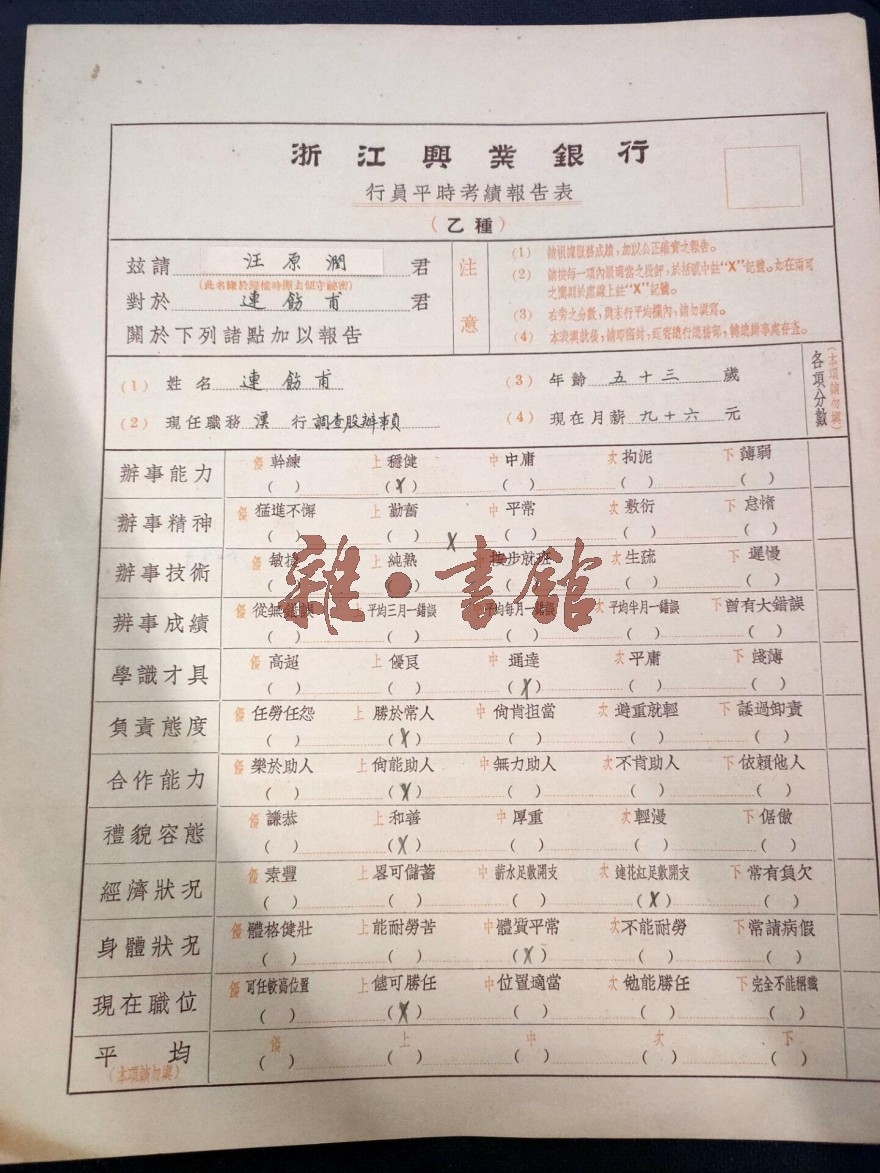 浙江興業銀行
行員平時考績報告表
(乙種)
茲請 汪原潤 君
(此名條於歸檔時撕去領守祕密)
對於 連飭甫 君
關於下列諸點加以報告
注意
(1) 請根據服務成績,加以公正確實之報告。
(2) 請按每一項內最適當之設評,於括弧中註“X”記號。如在兩可
之間則於虛線上註“X”記號。
(3) 右旁之分數,與末行平均欄內,請勿填寫。
(4) 本表填就後,請即密封,逕寄總行
(1) 姓名 連飭甫
(3) 年齡 五十三 歲
(2) 現任職務 漢 行 調查股辦事員
(4) 現在月薪 九十六 元
各項分數
(本項請勿填)
辦事能力 優 幹練 上 穩健 中 中庸 次 拘泥 下 薄弱
( ) (X) ( ) ( ) ( )
辦事精神 優 猛進不懈 上 勤奮 中 平常 次 敷衍 下 怠惰
( ) ( ) X ( ) ( ) ( )
辦事技術 優 敏捷 上 純熟 中 按步就班 次 生疏 下 遲慢
( ) ( ) ( ) ( )
辦事成績 優 從無錯誤 上 平均三月一錯誤 中 平均每月一錯誤 次 平均半月一錯誤 下 曾有大錯誤
( ) ( ) ( ) ( ) ( )
學識才具 優 高超 上 優良 中 通達 次 平庸 下 淺薄
( ) ( ) (X) ( ) ( )
負責態度 優 任勞任怨 上 勝於常人 中 尚肯担當 次 避重就輕 下 諉過卸責
( ) (X) ( ) ( ) ( )
合作能力 優 樂於助人 上 尚能助人 中 無力助人 次 不肯助人 下 依賴他人
( ) (X) ( ) ( ) ( )
禮貌容態 優 謙恭 上 和善 中 厚重 次 輕漫 下 倨傲
( ) (X) ( ) ( ) ( )
經濟狀況 優 素豐 上 畧可儲蓄 中 薪水足敷開支 次 連花紅足敷開支 下 常有負欠
( ) ( ) ( ) (X) ( )
身體狀況 優 體格健壯 上 能耐勞苦 中 體質平常 次 不能耐勞 下 常請病假
( ) ( ) (X) ( ) ( )
現在職位 優 可任較高位置 上 儘可勝任 中 位置適當 次 勉能勝任 下 完全不能稱職
( ) (X) ( ) ( ) ( )
平均 優 上 中 次 下
(本項請勿填) ( ) ( ) ( ) ( ) ( )
雜·書館